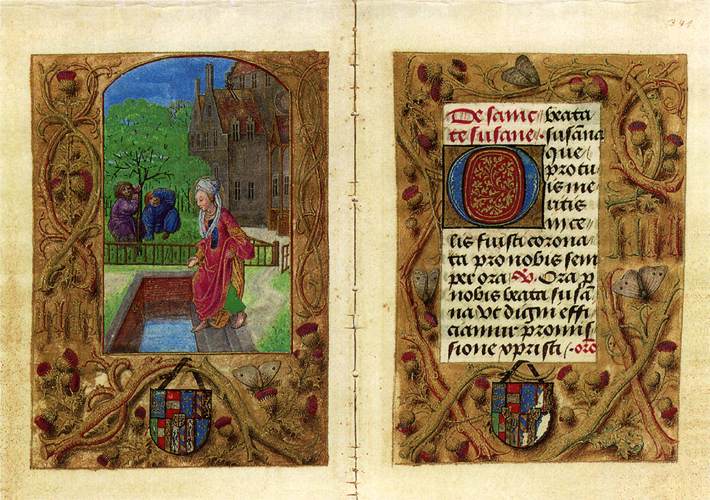 341
De sanc
te susane · beata
susana
que
pro tu
is me
ritis
in ce
lis fuisti corona
ta pro nobis sem
per ora V Ora p
nobis beata susan
na vt digni effi
ciamur promis
sione xpristi · oro